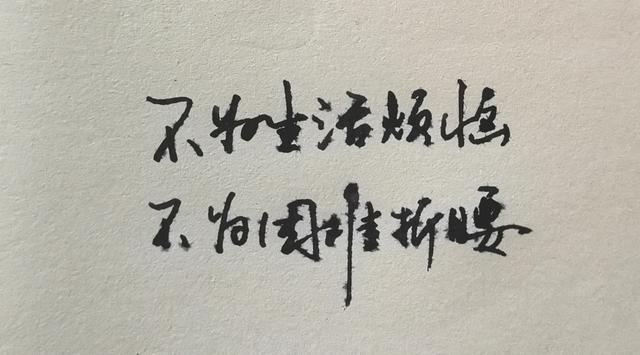 不为生活烦恼
不为困难折腰